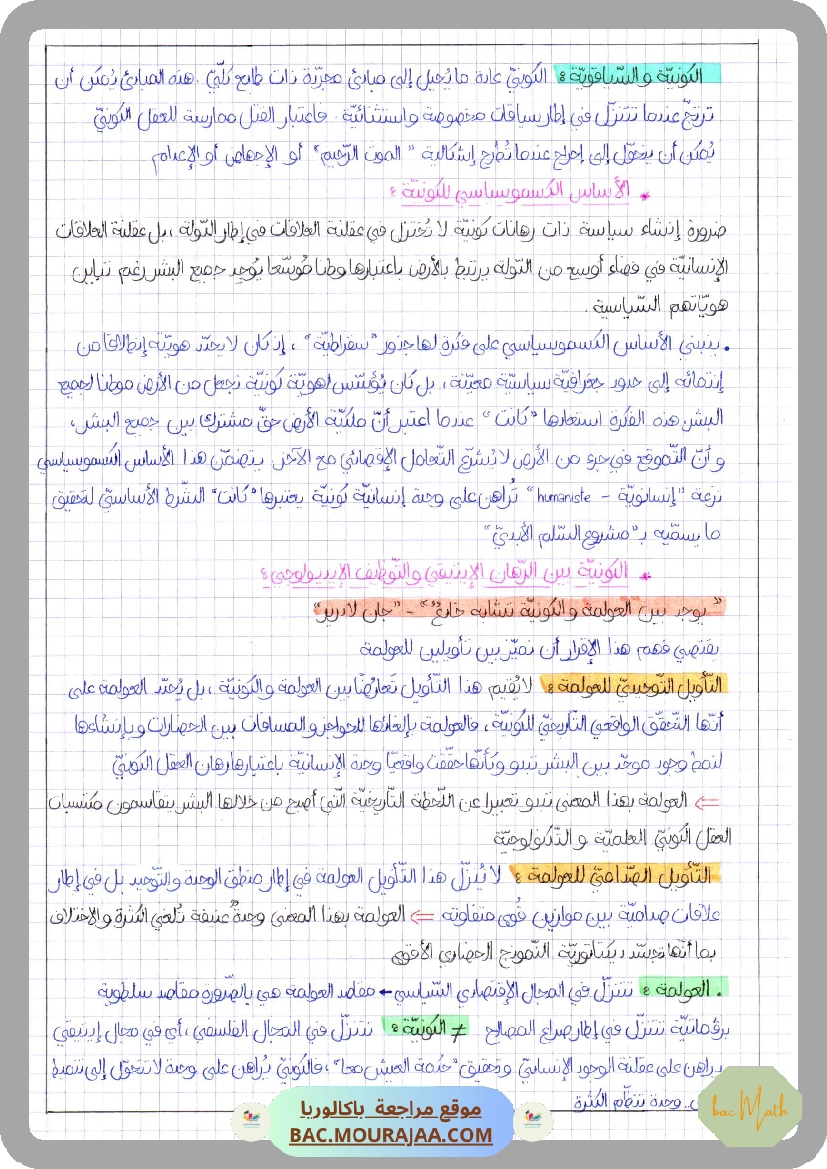 الكونيّة و السّياقويّة : الكونيّ عادة ما يُحيل إلى مبادئ مجرّدة ذات طابع كلّيّ . هذه المبادئ يُمكن أن
تربَحّ عندما تتنزّل في إطار سياقات مخصوصة واستثنائيّة . فاعتبار القتل ممارسة للعقل الكونيّ
يُمكن أن يتحوّل إلى إحراج عندما تُطرح إشكالية " الموت الرّحيم " أو الإجهاض أو الإعدام
* الأساس الكسموسياسي للكونيّة :
ضرورة إنشاء سياسة ذات رهانات كونيّة لا تُختزل في عقلنة العلاقات في إطار الدّولة ، بل عقلنة العلاقات
الإنسانيّة في فضاء أوسع من الدّولة يرتبط بالأرض باعتبارها وطنا مُوسّعا يُوحِد جميع البشر رغم تباين
هويّاتهم السّياسية .
. ينبني الأساس الكسموسياسي على فكرة لها جذور "سقراطيّة" ، إذ كان لا يحدّد هويّته إنطلاقا من
إنتمائه إلى حدود جغرافيّة سياسيّة معيّنة ، بل كان يُؤسّس لهويّة كونيّة تجعل من الأرض موطنا لجميع
البشر. هذه الفكرة استعارها "كانت" عندما اعتبر أنّ ملكيّة الأرض حقّ مشترك بين جميع البشر ،
و أنّ التّموقع في جزء من الأرض لا يُشرّع التّعامل الإقصائي مع الآخر. يتضمّن هذا الأساس الكسموسياسي
نزعة "إنسانويّة - humaniste" تُراهن على وحدة إنسانيّة كونيّة يعتبرها "كانت" الشّرط الأساسيّ لتحقيق
ما يسمّيه بـ "مشروع السّلم الأبديّ"
* الكونيّة بين الرّهان الإيتيقي والتّوظيف الإيديولوجي :
" يوجد بين العولمة و الكونيّة تشابه خادع " - "جان لادريز"
يقتضي فهم هذا الإقرار أن نميّز بين تأويلين للعولمة
التّأويل التّوحيديّ للعولمة : لا يُقيم هذا التّأويل تعارُضًا بين العولمة و الكونيّة ، بل يُحدّد العولمة على
أنّها التّحقّق الواقعي التّاريخيّ للكونيّة ، فالعولمة بإلغائها للحواجز و المسافات بين الحضارات و بإنشاءها
لنمط وجود موحّد بين البشر تبدو وكأنّها حقّقت واقعيّا وحدة الإنسانيّة باعتبارها رهان العقل الكونيّ
⇐ العولمة بهذا المعنى تبدو تعبيرا عن اللّحظة التّاريخيّة الّتي أصبح من خلالها البشر يتقاسمون مكتسبات
العقل الكونيّ العلميّة و التّكنولوجيّة
التّأويل الصّداميّ للعولمة : لا يُنزّل هذا التّأويل العولمة في إطار منطق الوحدة والتّوحيد بل في إطار
علاقات صداميّة بين موازين قُوى متفاوتة ⇐ العولمة بهذا المعنى وحدةٌ عنيفة تُلغي الكثرة و الاختلاف
بما أنّها تجسّد ديكتاتوريّة النّموذج الحضاري الأقوى
. العولمة : تتنزّل في المجال الإقتصادي السّياسي ← مقاصد العولمة هي بالضّرورة مقاصد سلطوية
برڨماتيّة تتنزّل في إطار صراع المصالح ≠ الكونيّة : تتنزّل في المجال الفلسفي ، أي في مجال إيتيقي
يراهن على عقلنة الوجود الإنسانيّ و تحقيق "حكمة العيش معا" ، فالكونيّ يُراهن على وحدة لا تتحوّل إلى تنميط
وحدة تنظّم الكثرة
موقع مراجعة باكالوريا
BAC.MOURAJAA.COM
bac Math